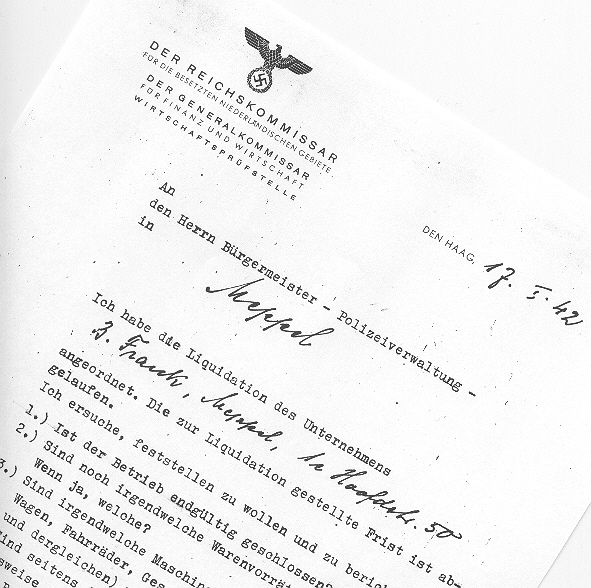 DER REICHSKOMMISSAR
FÜR DIE BESETZTEN NIEDERLÄNDISCHEN GEBIETE
DER GENERALKOMMISSAR
FÜR FINANZ UND WIRTSCHAFT
WIRTSCHAFTSPRÜFSTELLE
DEN HAAG, 17. I. 42
An
den Herrn Bürgermeister - Polizeiverwaltung -
in
Meppel
Ich habe die Liquidation des Unternehmens
Z. Frank, Meppel, 1e Hoofdstr. 50
angeordnet. Die zur Liquidation gestellte Frist ist ab-
gelaufen.
Ich ersuche, feststellen zu wollen und zu berich
1.) Ist der Betrieb endgültig geschlossen?
2.) Sind noch irgendwelche Warenvorrä
Wenn ja, welche?
3.) Sind irgendwelche Maschin
Wagen, Fahrräder, Ges
und dergleichen)
ind seitens
sweise